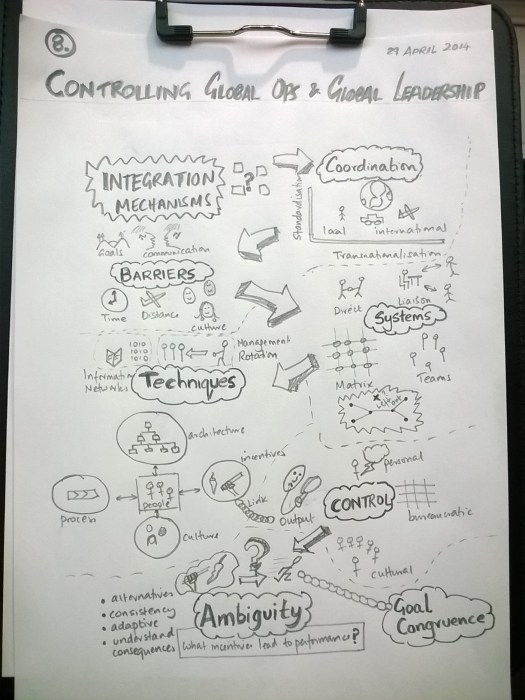 8.
29 APRIL 2014
CONTROLLING GLOBAL OPS & GLOBAL LEADERSHIP
INTEGRATION
MECHANISMS
?
Coordination
Standardisation
local international
Transnationalisation
Goals communication
BARRIERS
Time Distance culture
Direct Liaison
Systems
Matrix Teams
1010
1010
1010
Management
Rotation
Information
Networks
Techniques
architecture
incentives
people
process
Culture
Link
Output
personal
CONTROL
bureaucratic
cultural
?
• alternatives
• consistency
• adaptive
• understand
consequences
Ambiguity
What incentives lead to performance?
Goal
Congruence